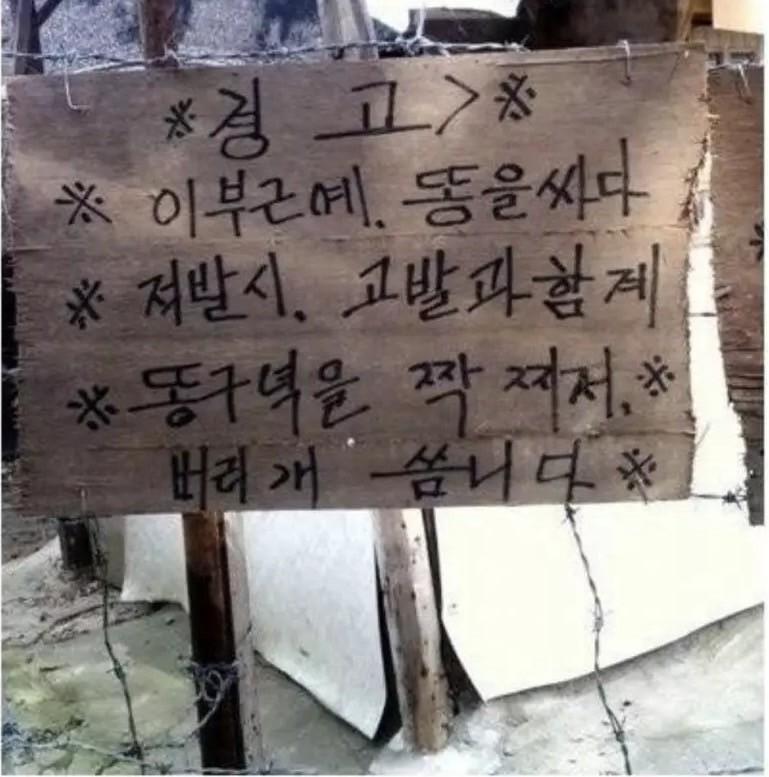 ※경 고>※
※ 이부근예. 똥을싸다
※ 적발시. 고발과함계
※ 똥구녁을 짝 찌저.※
버리개 씀니다 ※